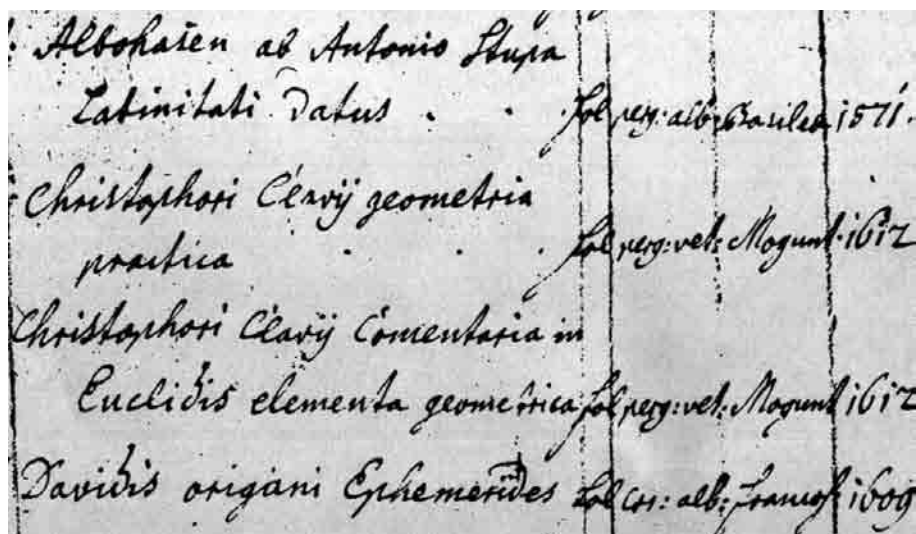 Albohasen ab Antonio Stupa
Latinitati Datus . . . fol perg: alb: Basilea 1571.
Christophori Clavij geometria
practica . . . fol perg: vet: Mogunt. 1612
Christophori Clavij Comentaria in
Euclidis elementa geometrica fol perg: vet: Mogunt 1612
Davidis origani Ephemerides fol cor: alb: Francof: 1609